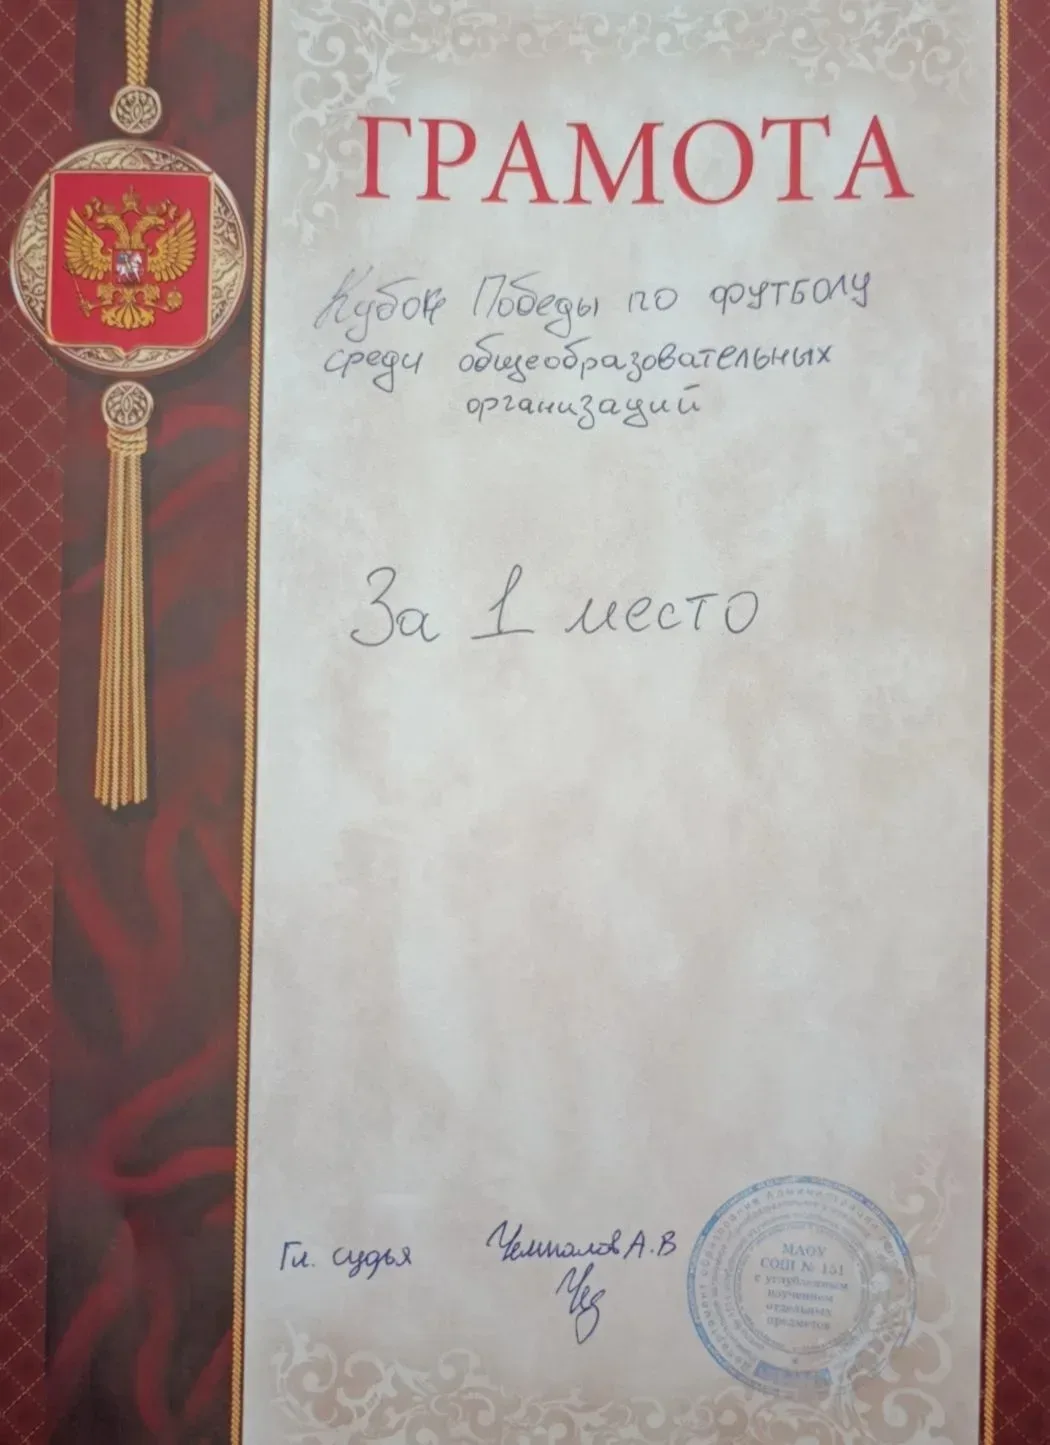 ГРАМОТА
Кубок Победы по футболу
среди общеобразовательных
организаций
За 1 место
Гл. судья
А.В
МАОУ
СОШ № 151
с углубленным
изучением
отдельных
предметов